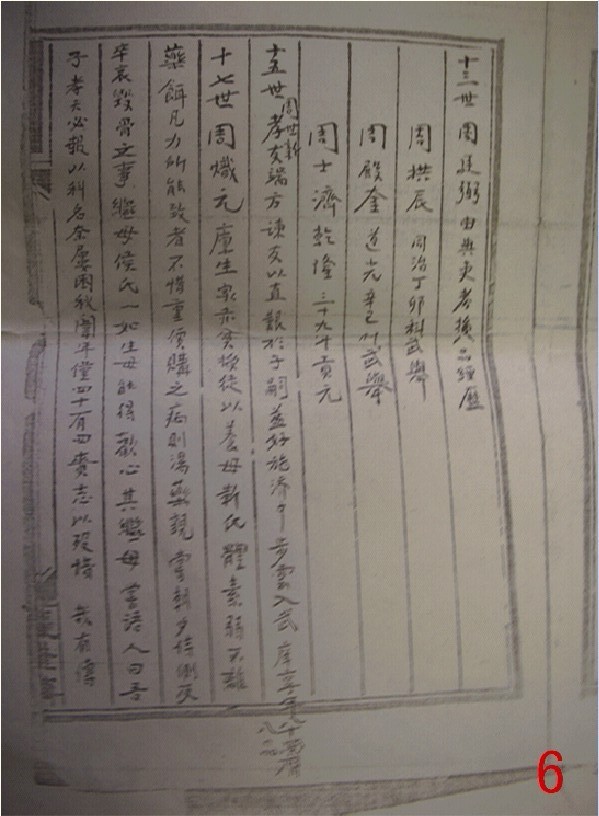 十三世 周廷弼 由典吏考換品經歷
周拱辰 同治丁卯科武舉
周殿奎 道光辛巳科武舉
周士濟 乾隆三十九年貢元
十五世 周世新 孝友端方 諫友以直 艱於子嗣 益好施濟 入武庠 享壽八十
十七世 周熾元 庠生 家赤貧 授徒以養 母郭氏體素弱 不離
藥餌 凡力所能致者 不惜重價購之 病則湯藥親嘗 朝夕侍側 及
卒 哀毀骨立 事繼母侯氏一如生母 能得歡心 其繼母嘗語人曰 吾
子孝 天必報以科名 奈屢困 年僅四十有四 賫志以歿 惜哉 有傳
6